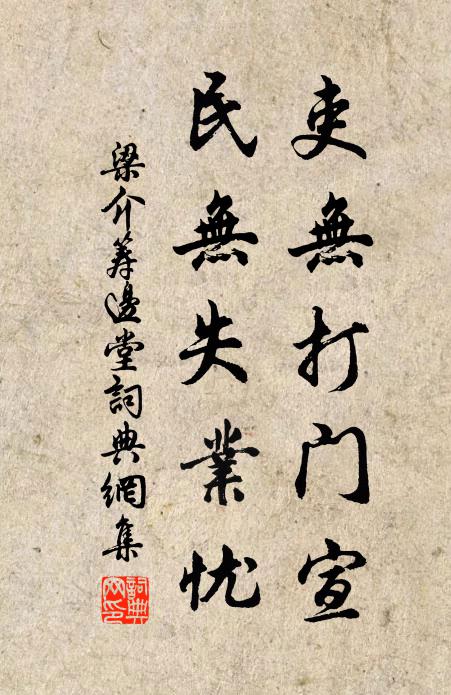 吏無打門宣
民無失業忧
梁介籌邊堂詞典網集
詞典网印